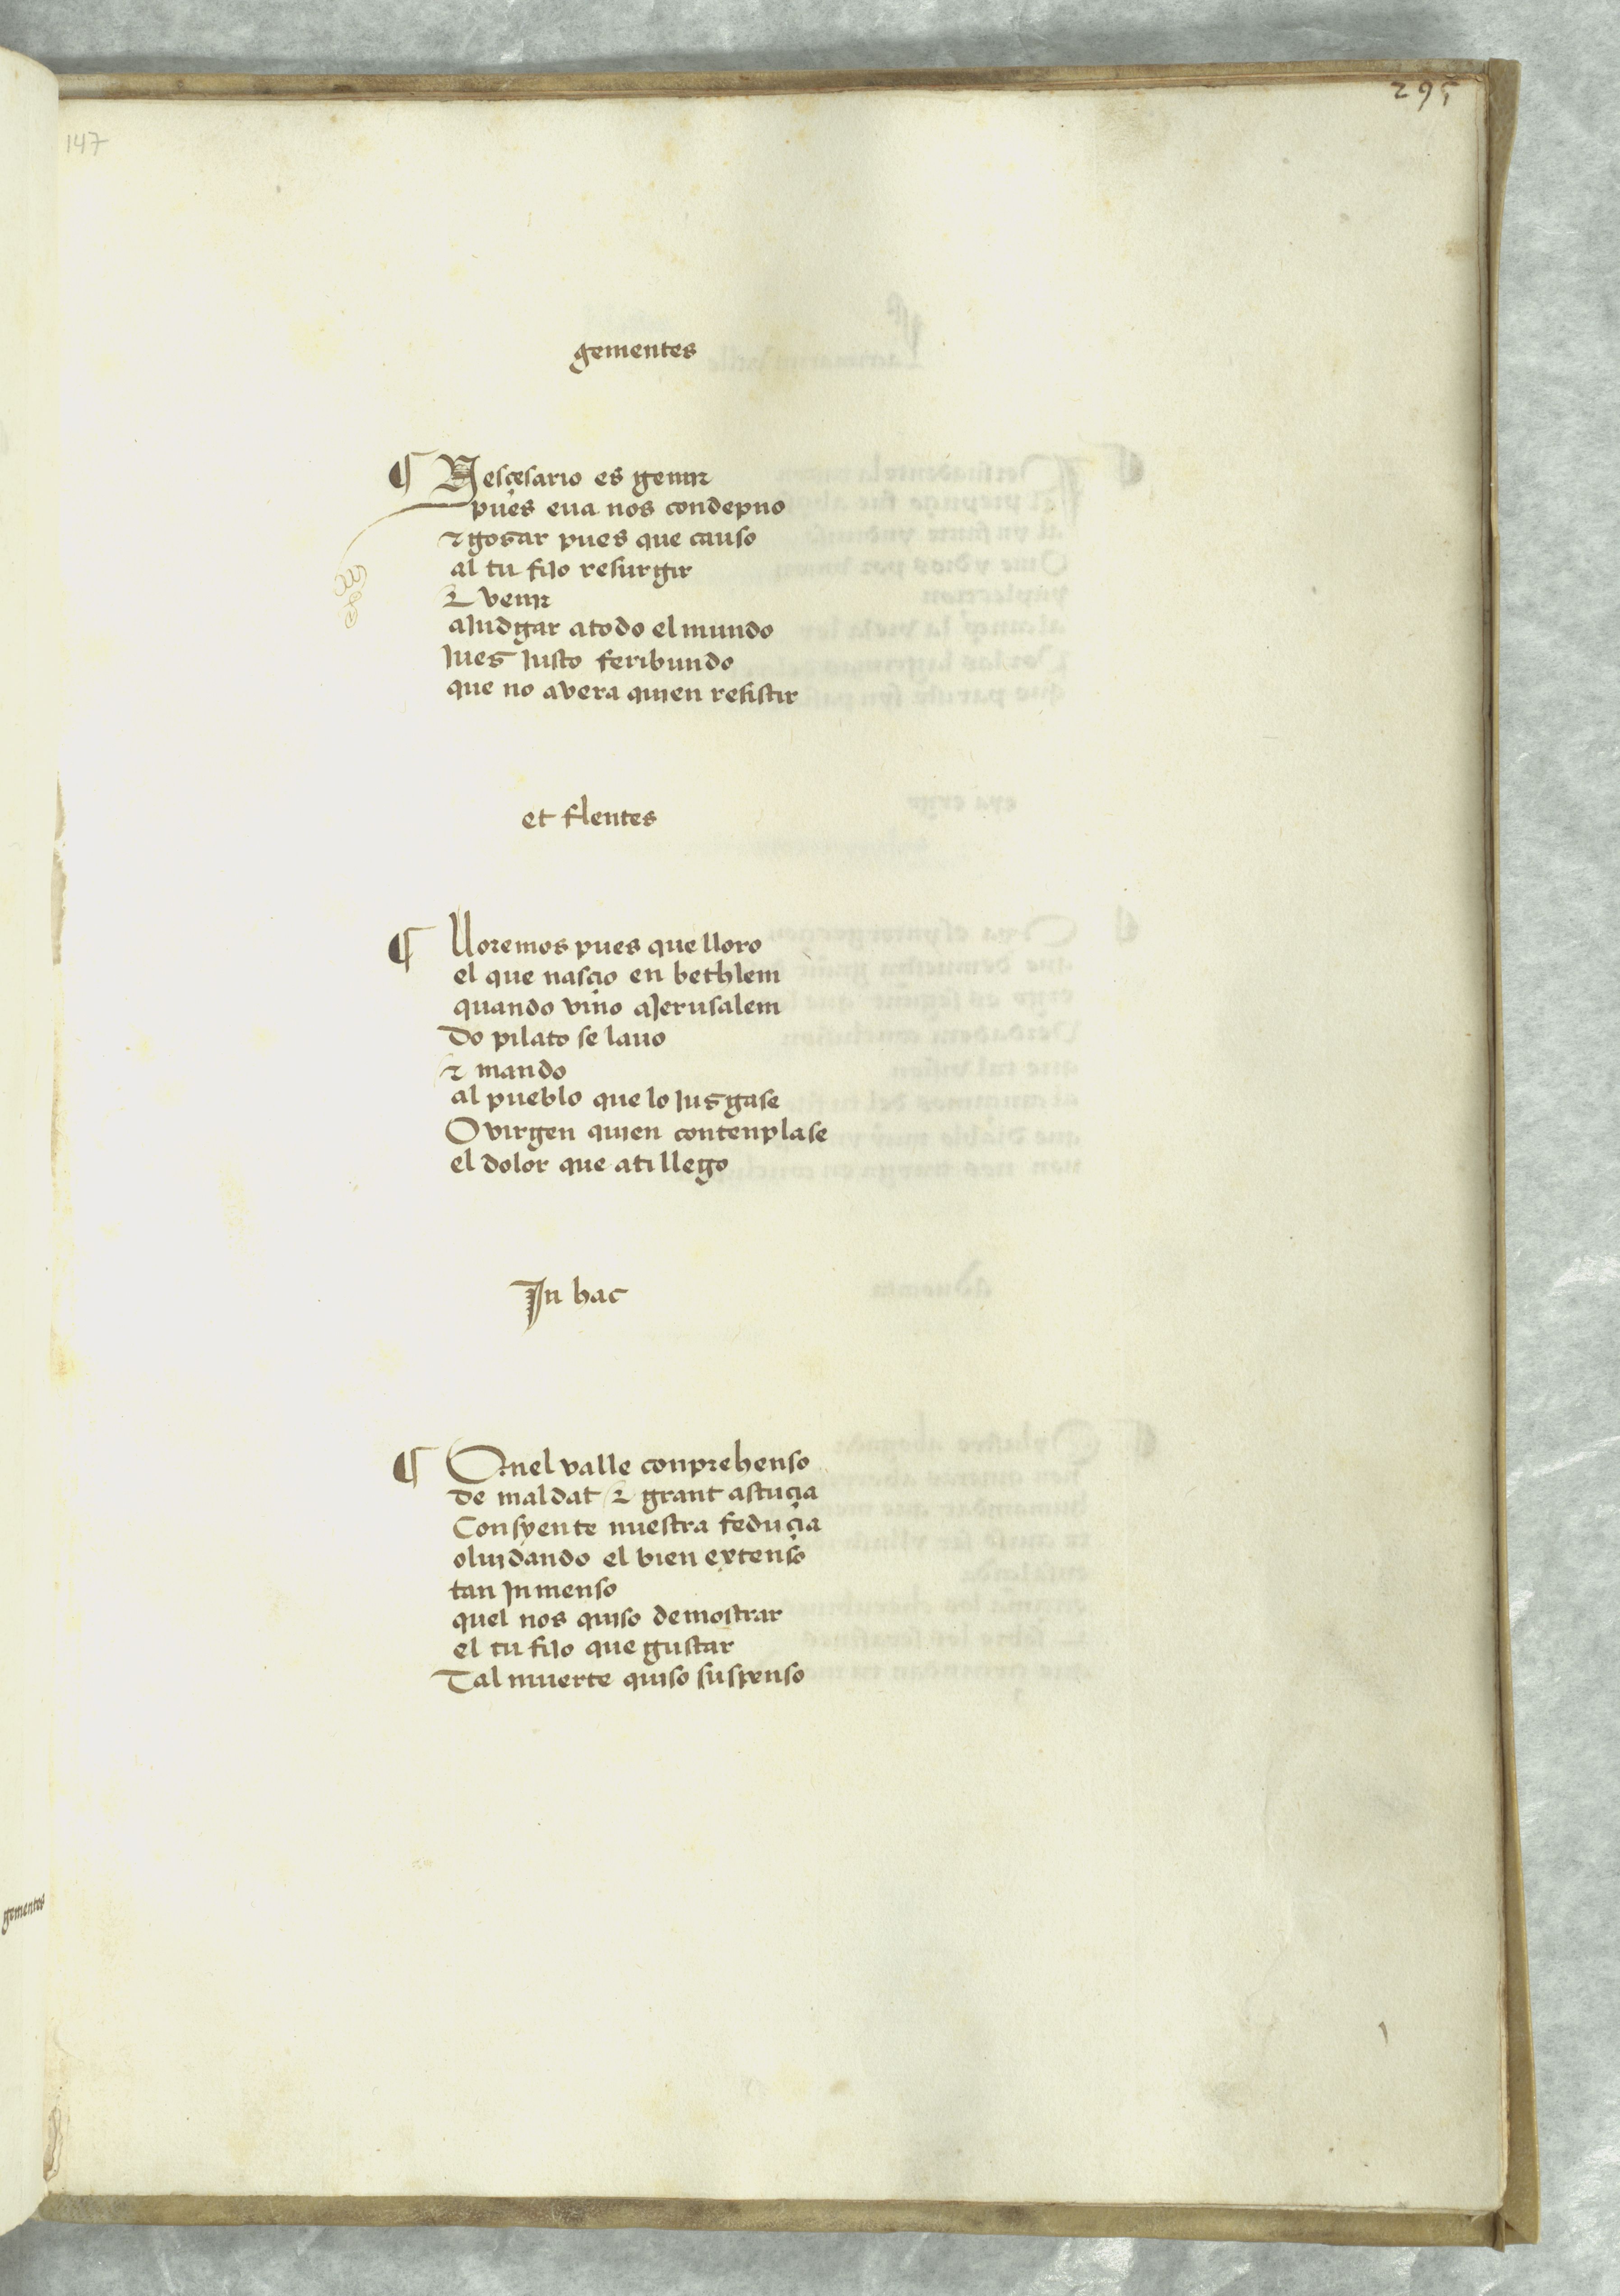 295
147
gementes
¶ Nesçesario es gemir
pues eua nos condepno
⁊ gosar pues que causo
al tu fijo resurgir
⁊ venir
a Judgar a todo el mundo
Jues Justo feribundo
que no avera quien resistir
et flentes
¶ Lloremos pues que lloro
el que nasçio en bethlem
quando vino a Jerusalem
do pilato se lauo
⁊ mando
al pueblo que lo Jusgase
O virgen quien contenplase
el dolor que a ti llego
In hac
¶ Enel valle conprehenso
de maldat ⁊ grant astuçia
Consyente nuestra feduçia
oluidando el bien extenso
tan Jnmenso
quel nos quiso demostrar
el tu fijo que gustar
Tal muerte quiso suspenso
gementes